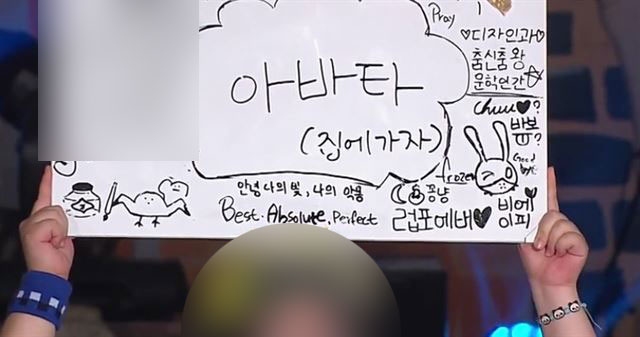 Pray
♡디자인과♡
춤신춤왕
문학인간☆
아바타
(집에가자)
Chuu♥?
바보
frozen
Good bye
안녕 나의 빛, 나의 악몽
쫑냥
Best. Absolute. Perfect
럽포에버♥
비에
이피